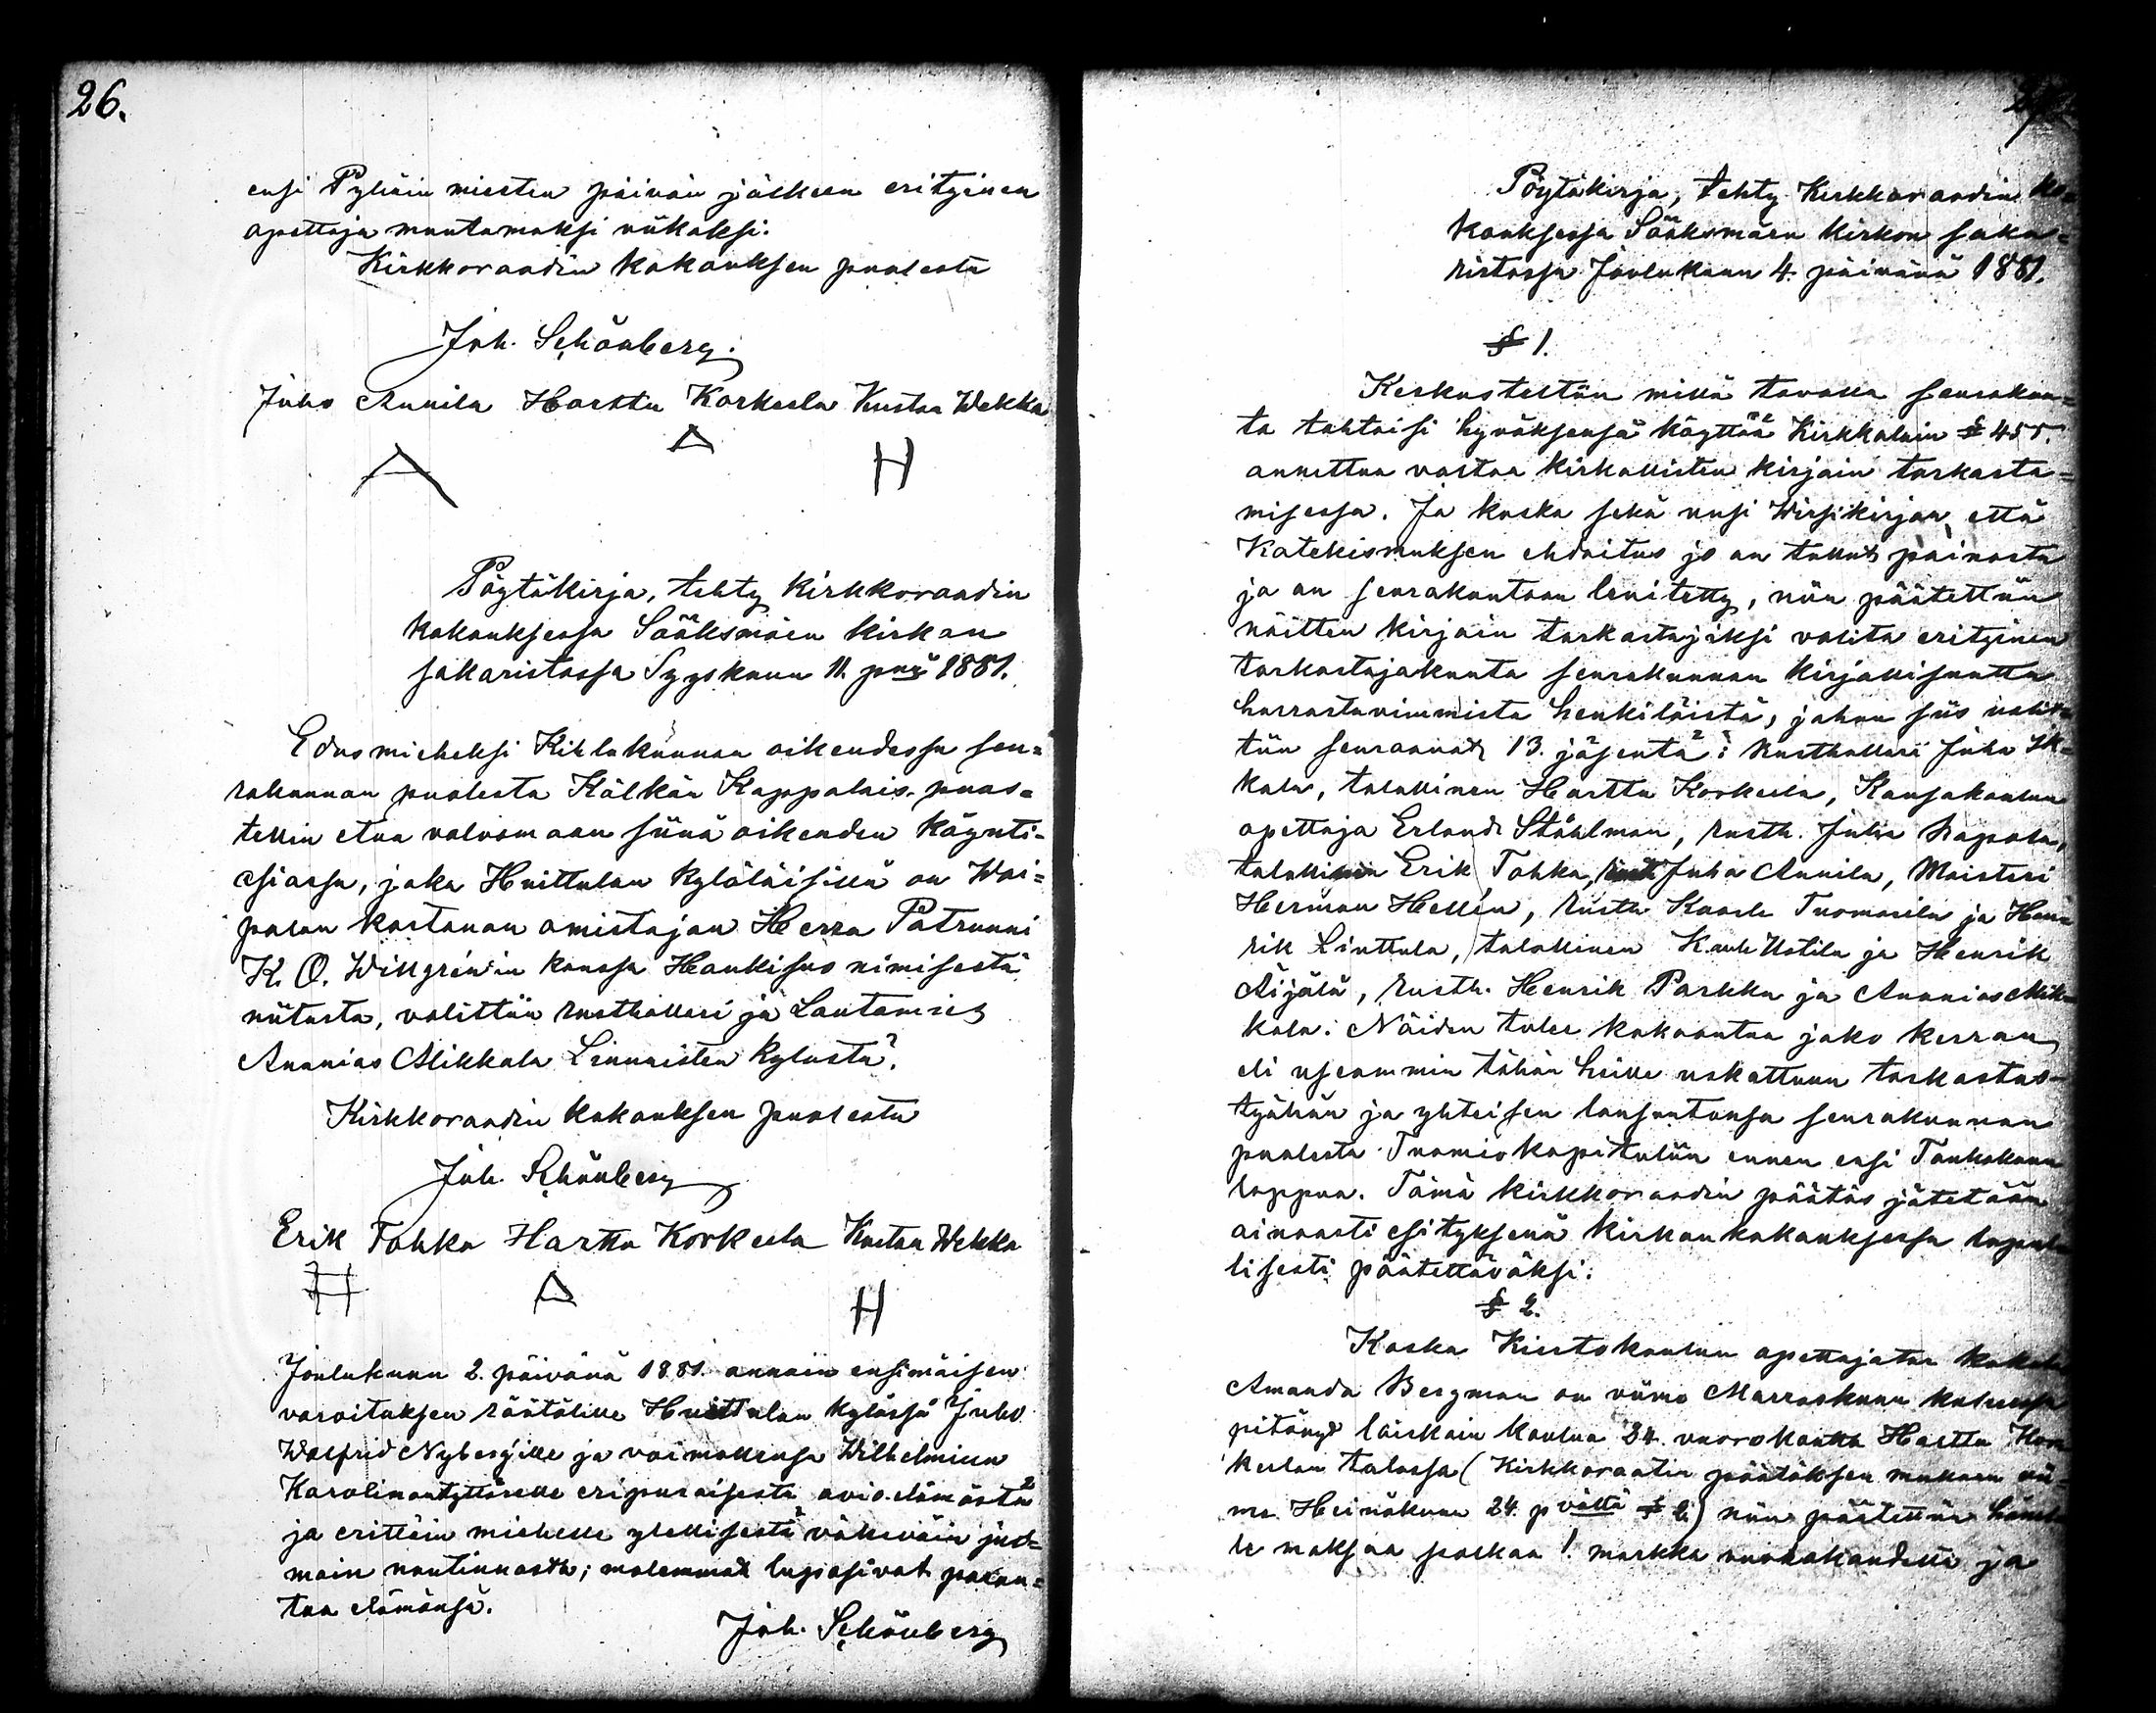 26.
ensi Pyhäin miesten päivän jälkeen erityinen
opettaja muutamaksi viikoksi.
Kirkkoraadin kokouksen puolesta
Joh. Schönberg.
Juho Annila Harttu Korkeela Kustaa Wekka
Pöytäkirja, tehty Kirkkoraadin
kokouksessa Sääksmäen kirkon
sakaristossa Syyskuun 11. pnä 1881.
Edusmieheksi Kihlakunnan oikeudessa seu=
rakunnan puolesta Kälkän Kappalais-puus=
tellin etua valvomaan siinä oikeuden käynti=
asiassa, joka Huittulan kyläläisillä on Woi=
palan kartanon omistajan Herra Patruuni
K. O. Willgrén'in kanssa Haukisuo nimisestä
niitusta, valittiin rusthollari ja Lautamies
Ananias Mikkola Linnaisten kylästä.
Kirkkoraadin kokouksen puolesta
Joh. Schönberg
Erik Tohka Harttu Korkeela Kustaa Wekka
Joulukuun 2. päivänä 1881. annoin ensimäisen
varoituksen räätälille Huittulan kylässä Juho
Walfrid Nyberg'ille ja vaimollensa Wilhelmiina
Karolinantyttärelle eripuraisesta avio-elämästä
ja erittäin miehelle ylellisestä väkeväin juo=
main nautinnosta; molemmat lupasivat paran=
taa elämänsä.
Joh. Schönberg
27.
Pöytäkirja, tehty Kirkkoraadin ko=
kouksessa Sääksmäen kirkon saka=
ristossa Joulukuun 4. päivänä 1881.
§ 1.
Keskusteltiin millä tavalla seurakun=
ta tahtoisi hyväksensä käyttää Kirkkolain § 455.
annettua valtaa kirkollisten kirjain tarkasta=
misessa. Ja koska sekä uusi Wirsikirjan että
Katekismuksen ehdoitus jo on tullut painosta
ja on seurakuntaan levitetty, niin päätettiin
näitten kirjain tarkastajiksi valita erityinen
tarkastajakunta seurakunnan kirjallisuutta
harrastavimmista henkilöistä, johon siis valit=
tiin seuraavat 13. jäsentä: Rusthollari Juha
kala, talollinen Harttu Korkeela, Kansakoulun
opettaja Erland Stählman, rusth. Juha Rapola,
talollinen Erik Tohka, Juha Annila, Maisteri
Herman Hellén, rusth Kaarle Tuomarila ja Hen=
rik Linttula, talollinen Uotila ja Henrik
Äijälä, rusth. Henrik Parkku ja Ananias Mik=
kola. Näiden tulee kokoontua joko kerran
eli useammin tähän heille uskottuun tarkastus=
työhön ja yhteisen lausuntonsa seurakunnan
puolesta Tuomiokapituliin ennen ensi Toukokuun
loppua. Tämä kirkkoraadin päätös jätetään
ainoasti esityksenä kirkonkokouksessa lopul=
lisesti päätettäväksi.
§ 2.
Koska Kiertokoulun opettajatar
Amanda Bergman on viime Marraskuun kuluessa
pitänyt laiskain koulua 24. vuorokautta Harttu Kor=
keelan talossa (Kirkkoraatin päätöksen mukaan vii=
me Heinäkuun 24. pvältä § 2.) niin päätettiin hänel=
le maksaa palkkaa 1. markka vuorokaudelta ja